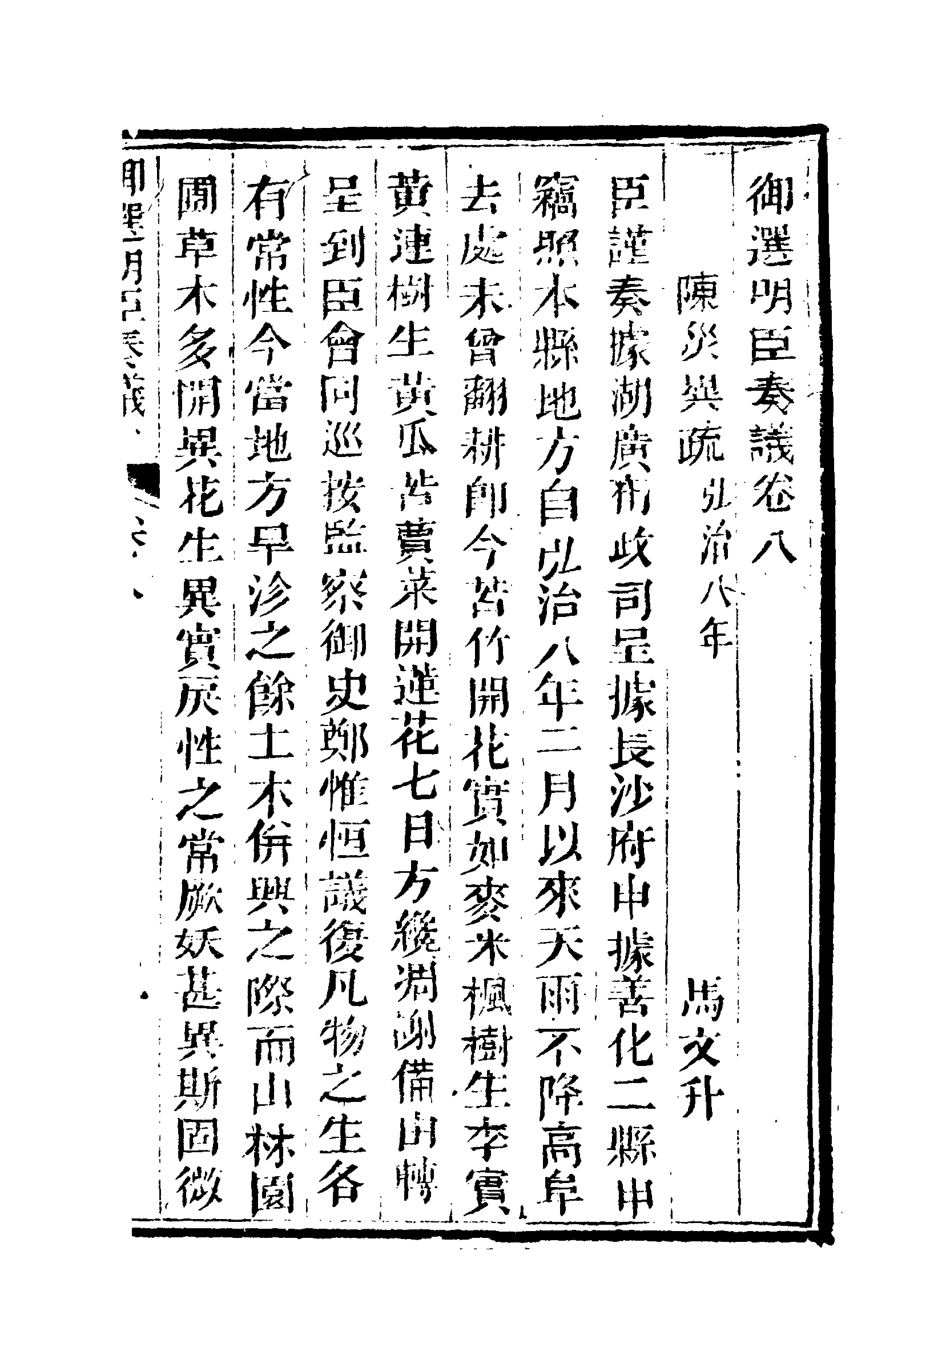 御選明臣奏議卷八
陳災異疏弘治八年 馬文升
臣謹奏據湖廣布政司呈據長沙府申據善化二縣申
竊照本縣地方自弘治八年二月以來天雨不降高阜
去處未曾翻耕即今苦竹開花實如麥米楓樹生李實
黄連樹生黄瓜苦蕒菜開蓮花七日方纔凋謝備由轉
呈到臣會同巡按監察御史鄭惟恒議復凡物之生各
有常性今當地方旱沴之餘土木併興之際而山林園
圃草木多開異花生異實戾性之常厥妖甚異斯固微
御選明臣奏議 卷八